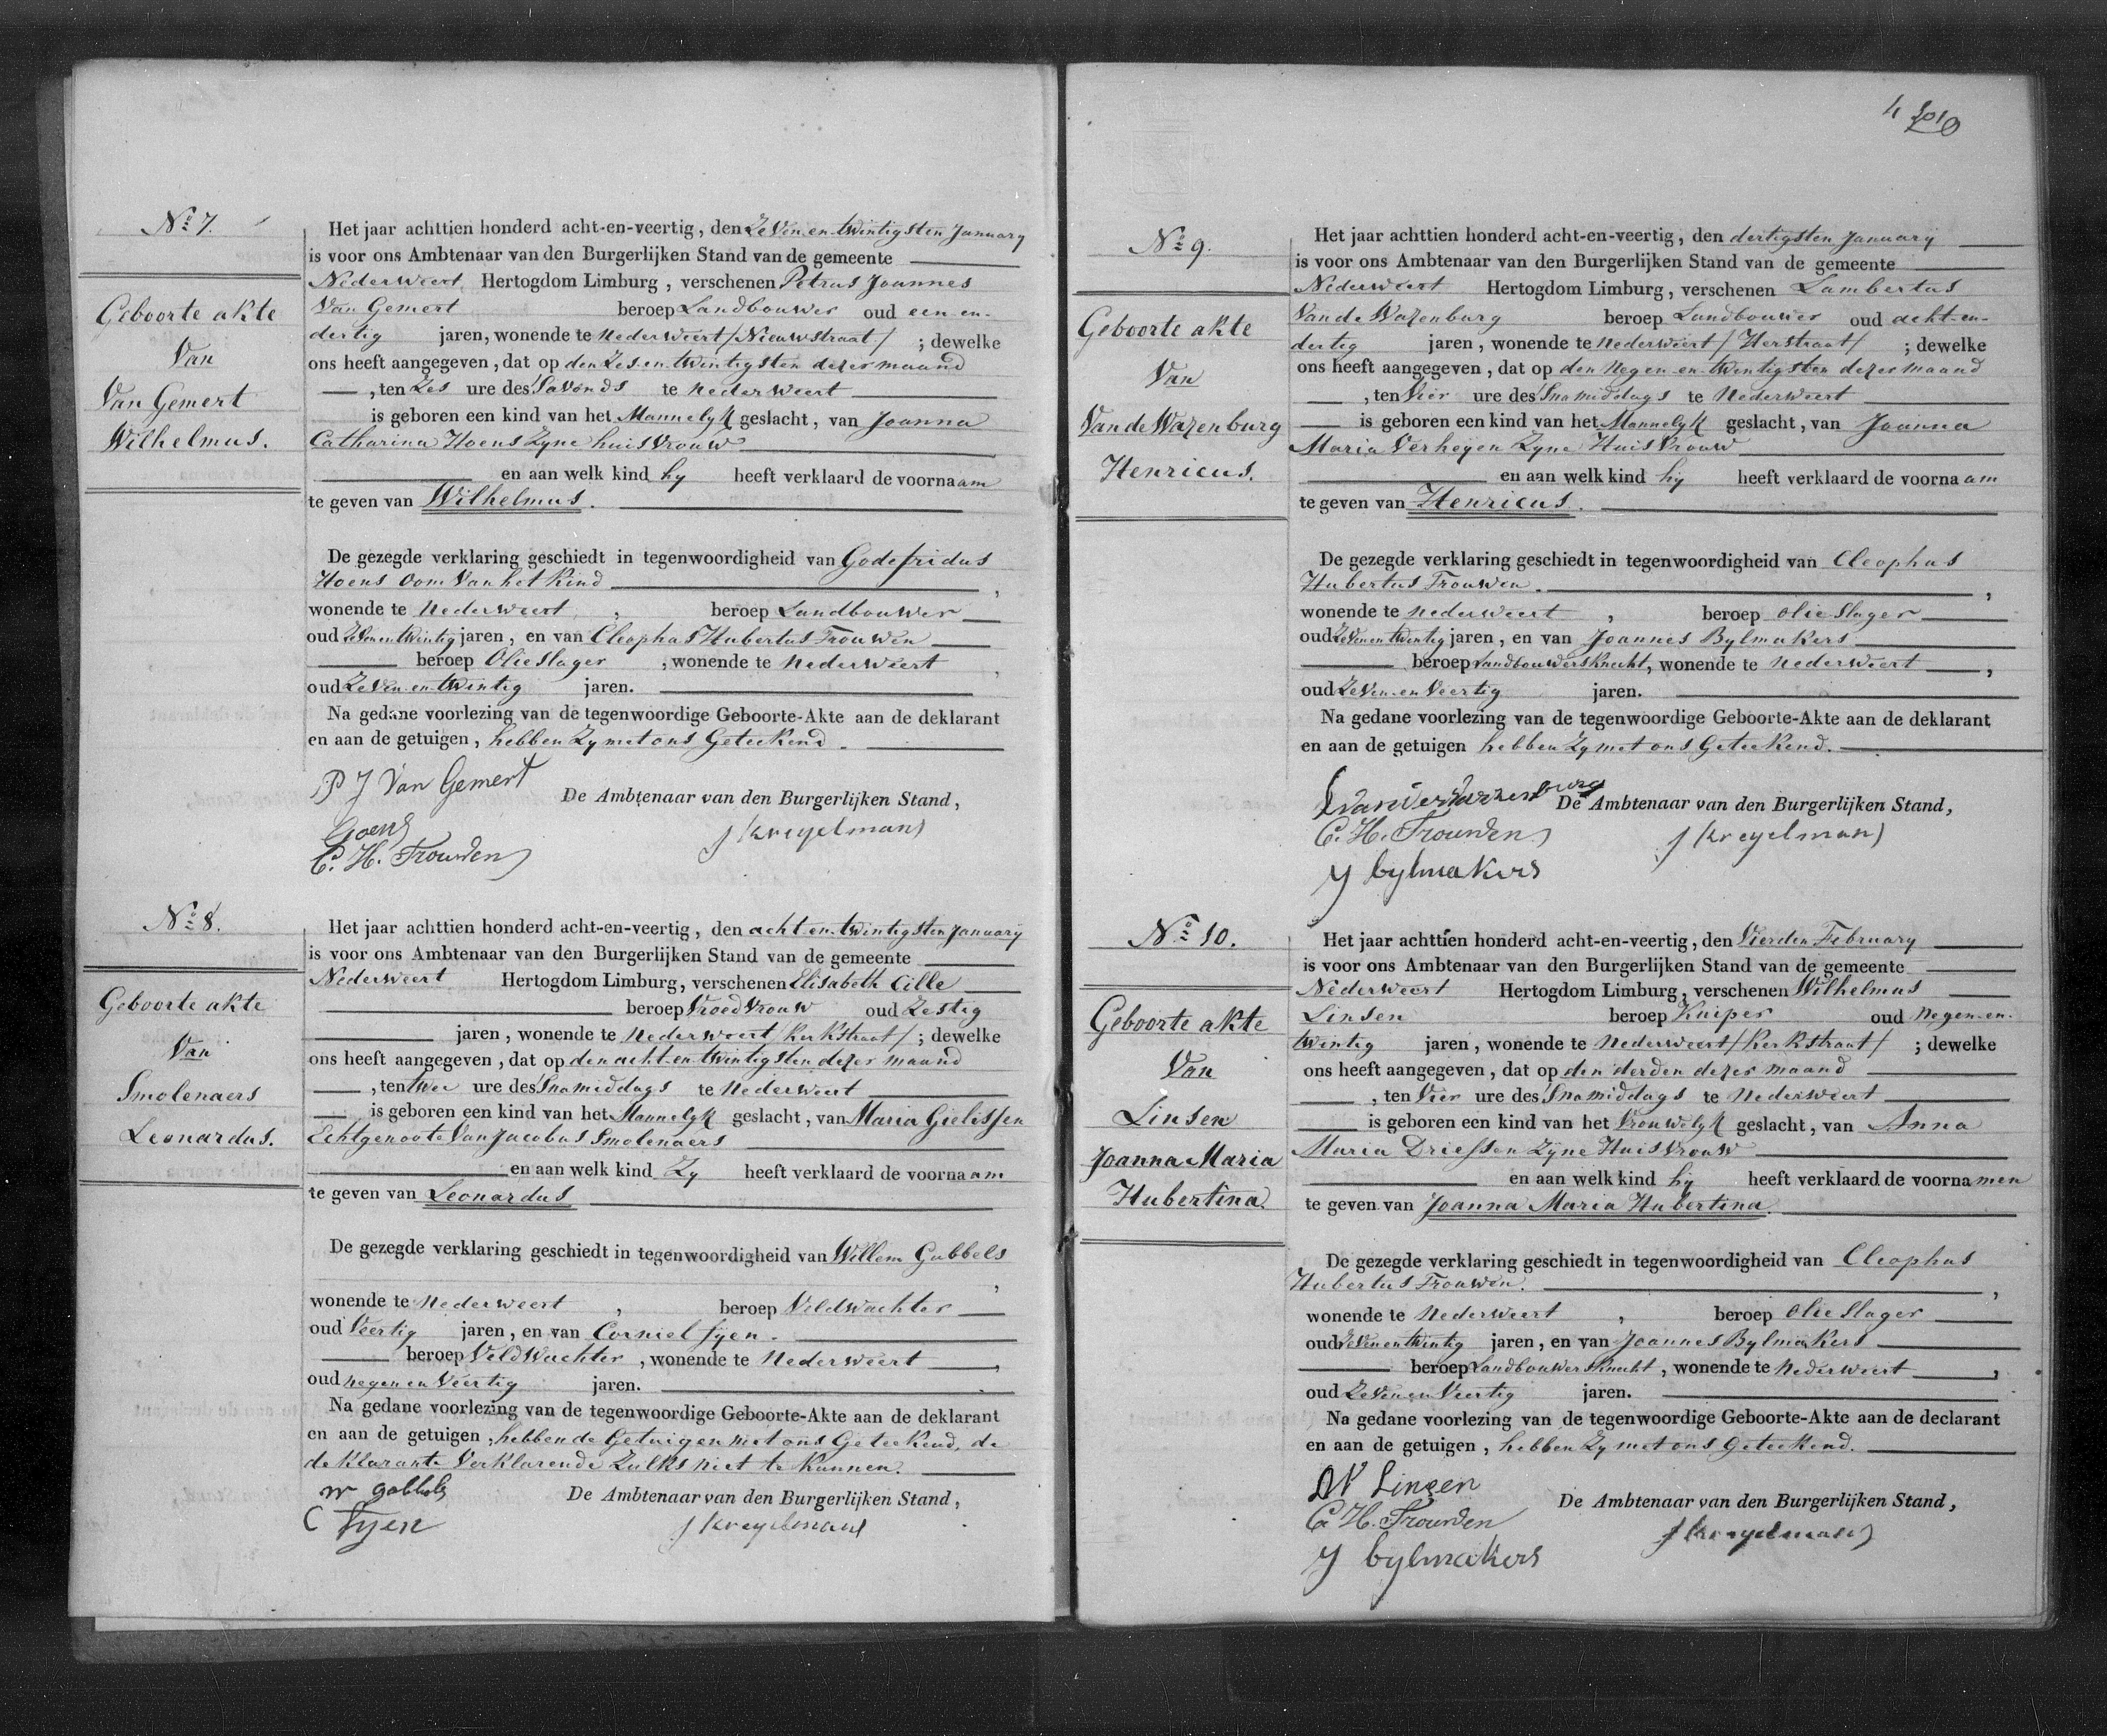 Nº 7.
Geboorte akte
Van
Van Gemert
Wilhelmus.
Het jaar achttien honderd acht-en-veertig, den Zeven-en-twintigsten January
is voor ons Ambtenaar van den Burgerlijken Stand van de gemeente
Nederweert Hertogdom Limburg, verschenen Petrus Joannes
Van Gemert beroep Landbouwer oud een-en-
dertig jaren, wonende te Nederweert /Nieuwstraat/ ; dewelke
ons heeft aangegeven, dat op den Zes-en-twintigsten dezer maand
, ten Zes ure des Savonds te Nederweert
is geboren een kind van het Mannelyk geslacht, van Joanna
Catharina Hoens Zyne huisvrouw
en aan welk kind hy heeft verklaard de voornaam
te geven van Wilhelmus.
De gezegde verklaring geschiedt in tegenwoordigheid van Godefridus
Hoens Oom Van het Kind ,
wonende te Nederweert , beroep Landbouwer
oud Zevenentwintig jaren, en van Cleophas Hubertus Trouwen
beroep Olieslager , wonende te Nederweert ,
oud Zeven-en-twintig jaren.
Na gedane voorlezing van de tegenwoordige Geboorte-Akte aan de deklarant
en aan de getuigen, hebben Zy met ons Geteekend.
P J Van Gemert
De Ambtenaar van den Burgerlijken Stand,
Goens
J Kreyelmans
C. H. Trouwen
Nº 8.
Geboorte akte
Van
Smolenaers
Leonardus.
Het jaar achttien honderd acht-en-veertig, den acht-en-twintigsten January
is voor ons Ambtenaar van den Burgerlijken Stand van de gemeente
Nederweert Hertogdom Limburg, verschenen Elisabeth Cille
beroep Vroedvrouw oud Zestig
jaren, wonende te Nederweert /Kerkstraat/ ; dewelke
ons heeft aangegeven, dat op den acht-en-twintigsten dezer maand
, ten twee ure des Snamiddags te Nederweert
is geboren een kind van het Mannelyk geslacht, van Maria Gielissen
Echtgenoote Van Jacobus Smolenaers
en aan welk kind Zy heeft verklaard de voornaam
te geven van Leonardus
De gezegde verklaring geschiedt in tegenwoordigheid van Willem Gubbels
,
wonende te Nederweert , beroep Veldwachter
oud Veertig jaren, en van Corniel Tyen.
beroep Veldwachter , wonende te Nederweert ,
oud negen en Veertig jaren.
Na gedane voorlezing van de tegenwoordige Geboorte-Akte aan de deklarant
en aan de getuigen, hebben de Getuigen met ons Geteekend, de
deklarante Verklarende Zulks niet te Kunnen.
W gobbels
De Ambtenaar van den Burgerlijken Stand,
C Tyen
J Kreyelmans
4
Nº 9.
Geboorte akte
Van
Van de Wazenburg
Henricus.
Het jaar achttien honderd acht-en-veertig, den dertigsten January
is voor ons Ambtenaar van den Burgerlijken Stand van de gemeente
Nederweert Hertogdom Limburg, verschenen Lambertus
Van de Wazenburg beroep Landbouwer oud acht-en-
dertig jaren, wonende te Nederweert /Herstraat/ ; dewelke
ons heeft aangegeven, dat op den Negen-en-twintigsten dezer maand
, ten Vier ure des Snamiddags te Nederweert
is geboren een kind van het Mannelyk geslacht, van Joanna
Maria Verheyen Zyne Huisvrouw
en aan welk kind hy heeft verklaard de voornaam
te geven van Henricus.
De gezegde verklaring geschiedt in tegenwoordigheid van Cleophas
Hubertus Trouwen. ,
wonende te Nederweert , beroep Olieslager
oud Zevenentwintig jaren, en van Joannes Bylmakers
beroep Landbouwersknecht, wonende te Nederweert ,
oud Zeven-en-Veertig jaren.
Na gedane voorlezing van de tegenwoordige Geboorte-Akte aan de deklarant
en aan de getuigen hebben Zy met ons Geteekend.
De Ambtenaar van den Burgerlijken Stand,
C. H. Trouwen
J Kreyelmans
J bylmakers
Nº 10.
Geboorte akte
Van
Linsen
Joanna Maria
Hubertina.
Het jaar achttien honderd acht-en-veertig, den Vierden February
is voor ons Ambtenaar van den Burgerlijken Stand van de gemeente
Nederweert Hertogdom Limburg, verschenen Wilhelmus
Linsen beroep Kuiper oud Negen-en-
twintig jaren, wonende te Nederweert /Kerkstraat/ ; dewelke
ons heeft aangegeven, dat op den derden dezer maand
, ten Vier ure des Snamiddags te Nederweert
is geboren een kind van het Vrouwelyk geslacht, van Anna
Maria Driessen Zyne Huisvrouw
en aan welk kind hy heeft verklaard de voornamen
te geven van Joanna Maria Hubertina.
De gezegde verklaring geschiedt in tegenwoordigheid van Cleophas
Hubertus Trouwen. ,
wonende te Nederweert , beroep Olieslager
oud Zevenentwintig jaren, en van Joannes Bylmakers
beroep Landbouwersknecht, wonende te Nederweert ,
oud Zeven en Veertig jaren.
Na gedane voorlezing van de tegenwoordige Geboorte-Akte aan de declarant
en aan de getuigen, hebben Zy met ons Geteekend.
W Linsen
De Ambtenaar van den Burgerlijken Stand,
C. H. Trouwen
J Kreyelmans
J bylmakers